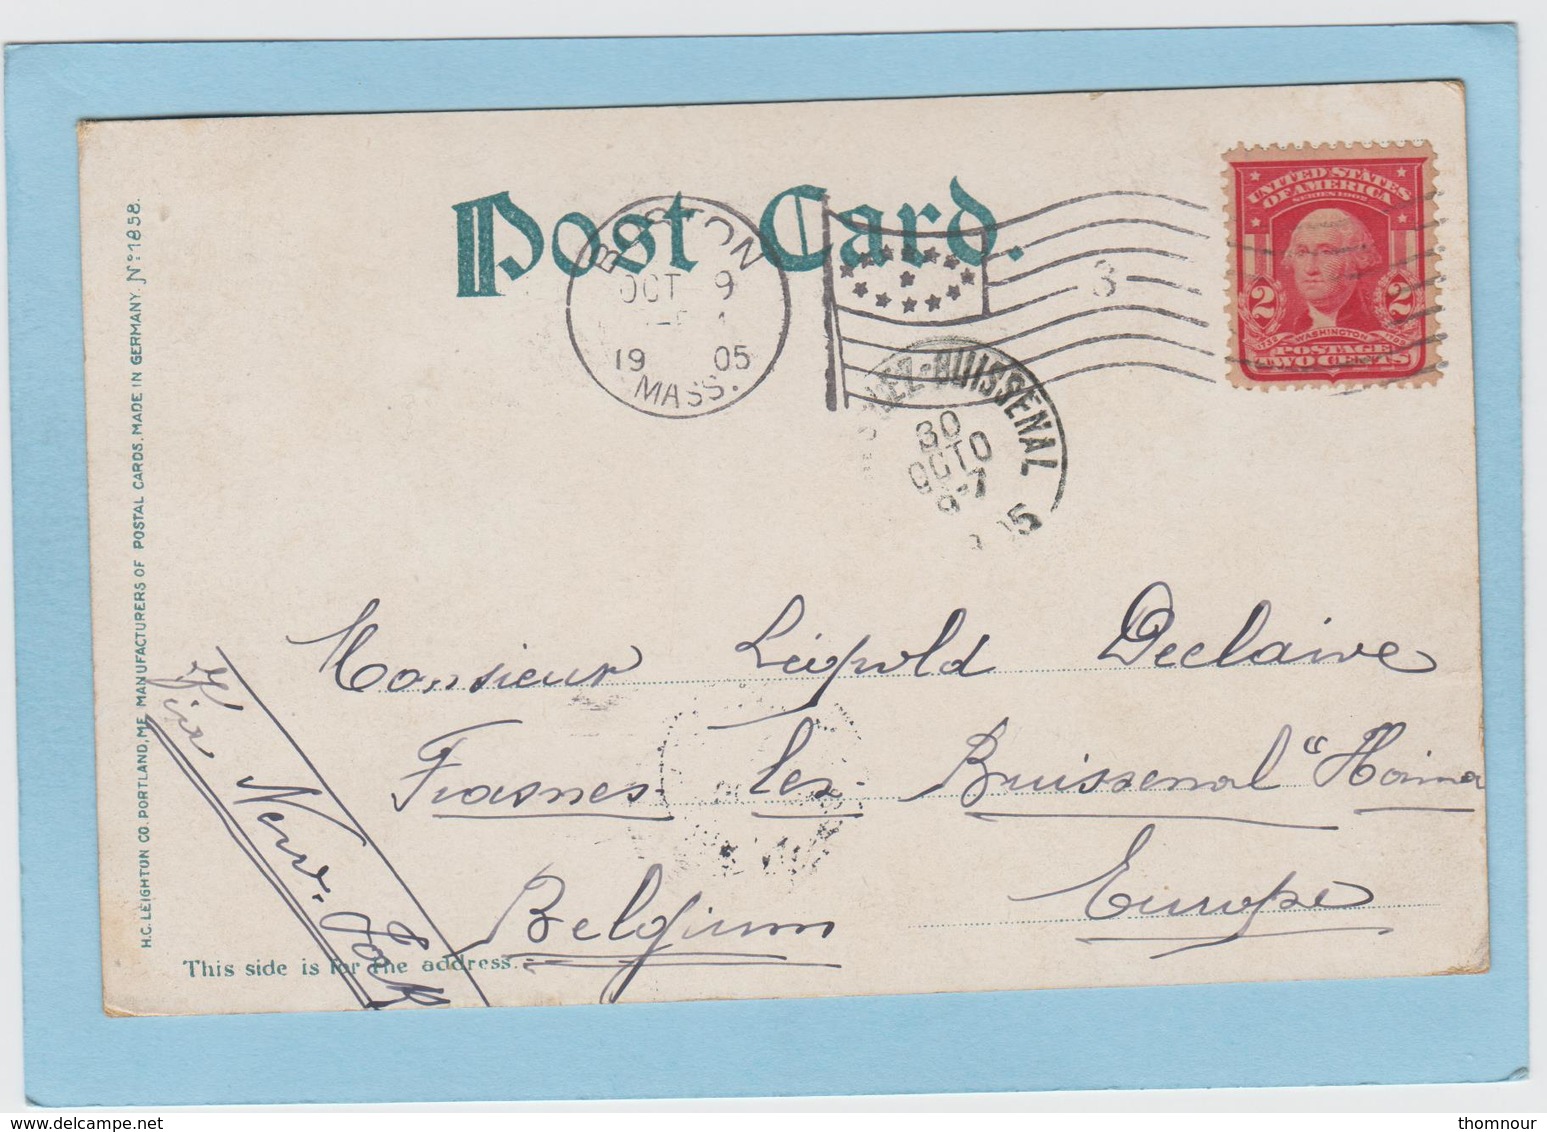 Post Card.
BOSTON
OCT 9
19 05
MASS.
3
UNITED STATES
OF AMERICA
SERIES 1902
2 2
WASHINGTON
POSTAGE
TWO CENTS
LEZ-BUISSENAL
30
OCTO
05
Monsieur Léopold Declaire
Frasnes lez Buissenal "Haina
Belgium Europe
Via New-York
This side is for the address.
H.C. LEIGHTON CO. PORTLAND, ME. MANUFACTURERS OF POSTAL CARDS. MADE IN GERMANY. No 1858.
thomnour